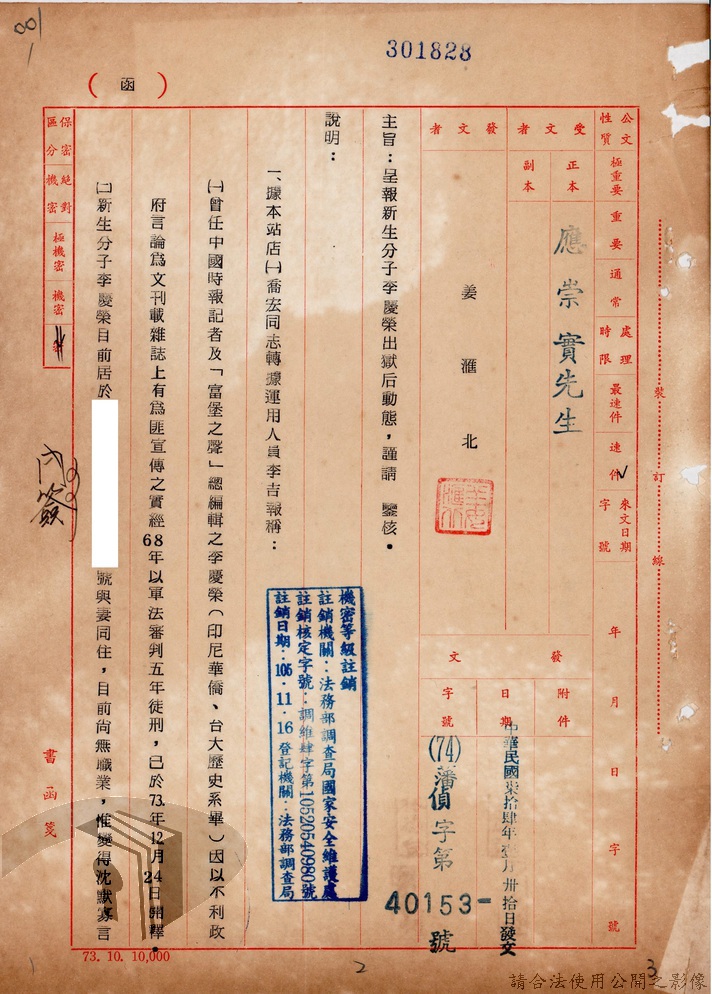 301828
(函)
公文性質
極重要
重要
通常
處理時限
最速件
速件
來文日期字號
年
月
日
字
號
受文者
正本
副本
應崇實先生
發文者
姜滙北
發文
附件
日期
中華民國柒拾肆年壹月卅拾日發文
字號
(74)藩偵字第
40153-
號
主旨：呈報新生分子李慶榮出獄后動態，謹請　鑒核。
說明：
一、據本站店㈠喬宏同志轉據運用人員李吉報稱：
㈠曾任中國時報記者及「富堡之聲」總編輯之李慶榮(印尼華僑、台大歷史系畢)因以不利政
府言論為文刊載雜誌上有為匪宣傳之實經68年以軍法審判五年徒刑，已於73.年12月24日開釋。
㈡新生分子李慶榮目前居於
號與妻同住，目前尚無職業，惟變得沈默寡言
機密等級註銷
註銷機關：法務部調查局國家安全維護處
註銷核定字號：調維肆字第10520540980號
註銷日期：105.11.16登記機關：法務部調查局
保密區分
絕對機密
極機密
機密
密
內簽
書函箋
裝
訂
線
73. 10. 10,000
1
2
3
請合法使用公開之影像